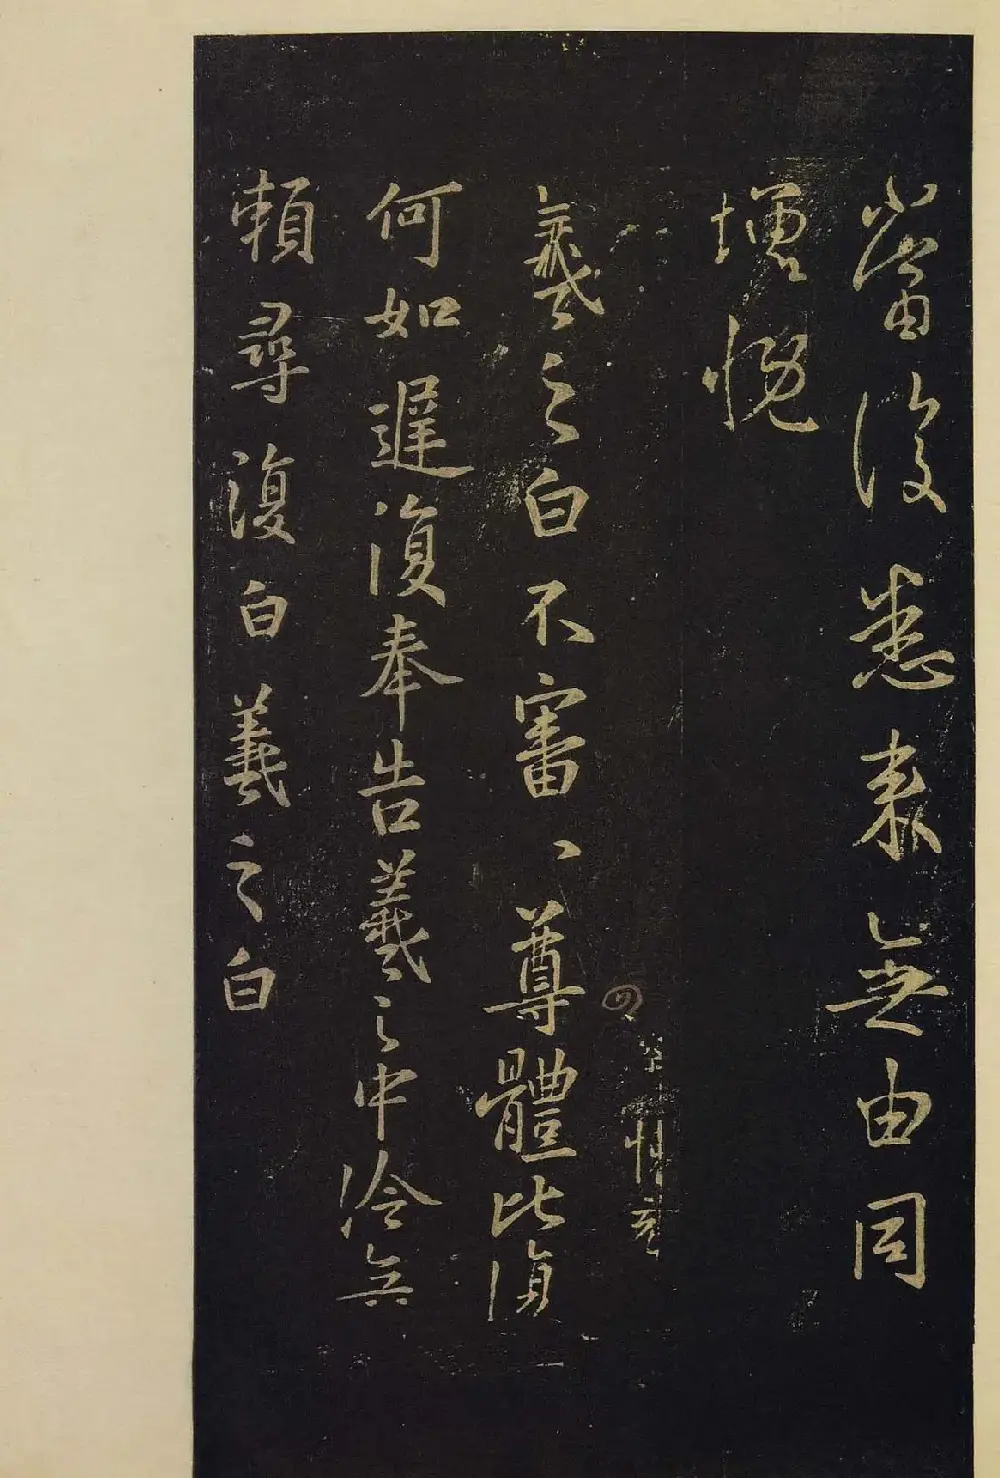 當復悉來無由同
增慨
羲之白不審、尊體比復
何如遲復奉告羲之中冷無
賴尋復白羲之白